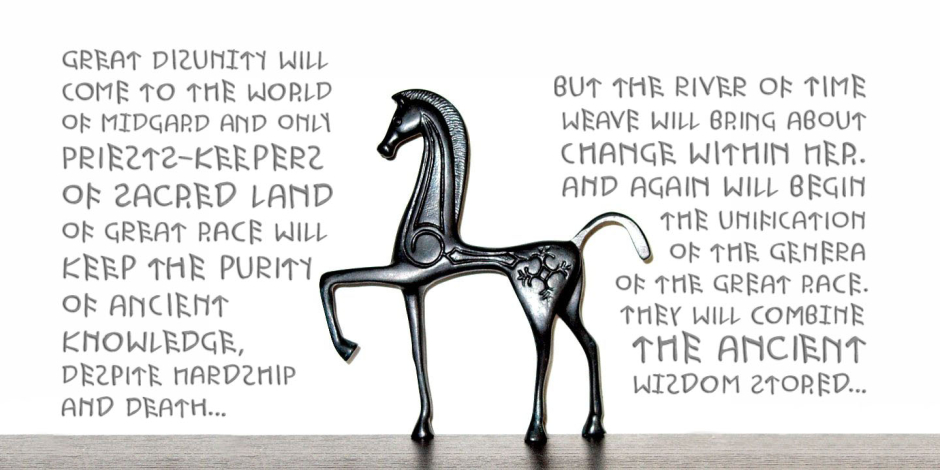 GREAT DISUNITY WILL
COME TO THE WORLD
OF MIDGARD AND ONLY
PRIESTS-KEEPERS
OF SACRED LAND
OF GREAT RACE WILL
KEEP THE PURITY
OF ANCIENT
KNOWLEDGE,
DESPITE HARDSHIP
AND DEATH...
BUT THE RIVER OF TIME
WEAVE WILL BRING ABOUT
CHANGE WITHIN HER.
AND AGAIN WILL BEGIN
THE UNIFICATION
OF THE GENERA
OF THE GREAT RACE.
THEY WILL COMBINE
THE ANCIENT
WISDOM STORED...